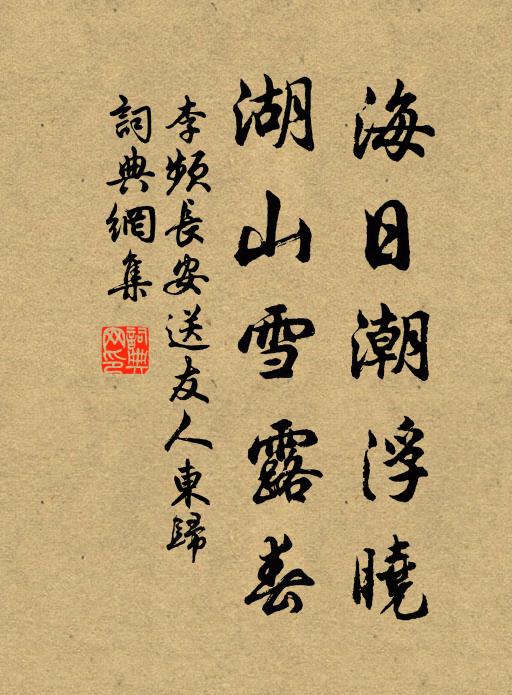 海日潮浮曉
湖山雪露春
李頻長安送友人東歸
詞典網集
詞典网印